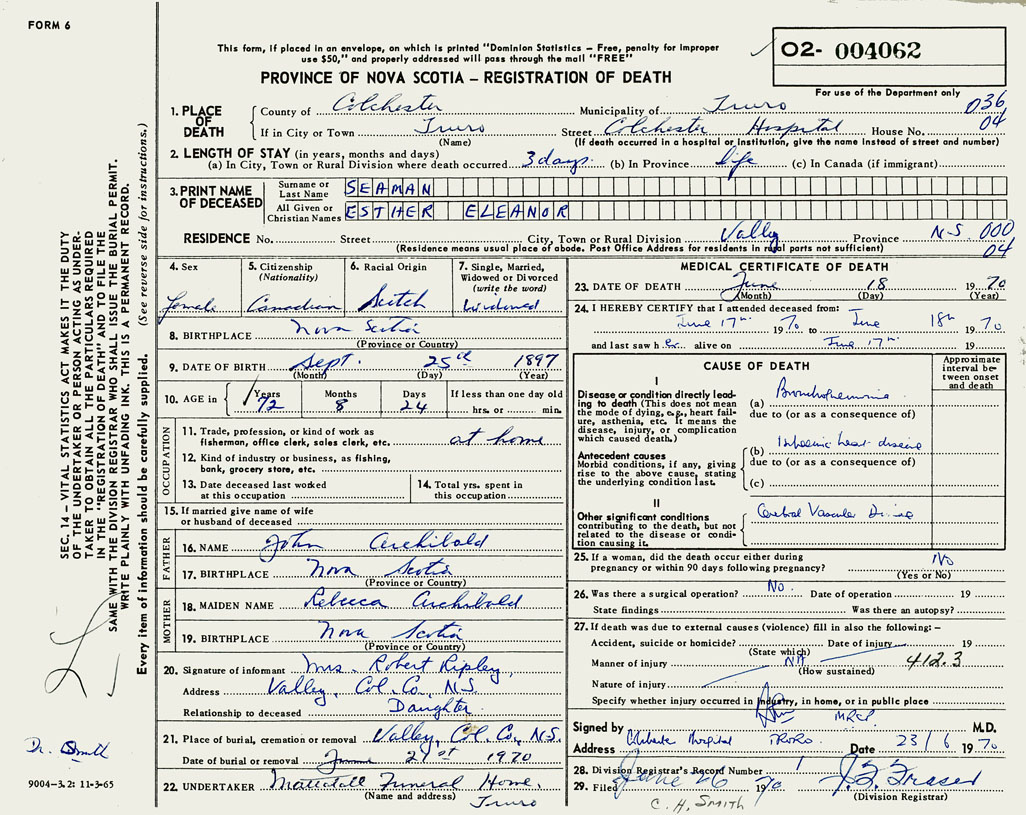 FORM 6
This form, if placed in an envelope, on which is printed "Dominion Statistics – Free, penalty for improper
use $50," and properly addressed will pass through the mail "FREE"
02- 004062
For use of the Department only
PROVINCE OF NOVA SCOTIA – REGISTRATION OF DEATH
036
04
1. PLACE OF DEATH
County of Colchester Municipality of Truro
If in City or Town Truro Street Colchester Hospital House No.
(Name) (If death occurred in a hospital or institution, give the name instead of street and number)
2. LENGTH OF STAY (in years, months and days)
(a) In City, Town or Rural Division where death occurred 3 days (b) In Province life (c) In Canada (if immigrant)
3. PRINT NAME OF DECEASED
Surname or Last Name SEAMAN
All Given or Christian Names ESTHER ELEANOR
RESIDENCE No. Street City, Town or Rural Division Valley Province N S 000
(Residence means usual place of abode. Post Office Address for residents in rural parts not sufficient) 04
4. Sex
female
5. Citizenship
(Nationality)
Canadian
6. Racial Origin
Scitch
7. Single, Married,
Widowed or Divorced
(write the word)
Widowed
8. BIRTHPLACE Nova Scotia
(Province or Country)
9. DATE OF BIRTH Sept. 25th 1897
(Month) (Day) (Year)
10. AGE in Years 72 Months 8 Days 24 If less than one day old
hrs. or min.
OCCUPATION
11. Trade, profession, or kind of work as
fisherman, office clerk, sales clerk, etc. at home
12. Kind of industry or business, as fishing,
bank, grocery store, etc.
13. Date deceased last worked
at this occupation
14. Total yrs. spent in
this occupation
15. If married give name of wife
or husband of deceased
FATHER
16. NAME John Archibald
17. BIRTHPLACE Nova Scotia
(Province or Country)
MOTHER
18. MAIDEN NAME Rebecca Archibald
19. BIRTHPLACE Nova Scotia
(Province or Country)
20. Signature of informant Mrs. Robert Ripley
Address Valley, Col. Co., N.S.
Relationship to deceased Daughter
21. Place of burial, cremation or removal Valley, Col. Co., N.S.
Date of burial or removal June 21st 1970
22. UNDERTAKER Mattatall Funeral Home,
(Name and address) Truro
MEDICAL CERTIFICATE OF DEATH
23. DATE OF DEATH June 18 1970
(Month) (Day) (Year)
24. I HEREBY CERTIFY that I attended deceased from:
June 17th 1970 to June 18th 1970
and last saw her alive on June 17th 19
CAUSE OF DEATH
Approximate
interval be-
tween onset
and death
I
Disease or condition directly lead-
ing to death (This does not mean
the mode of dying, e.g., heart fail-
ure, asthenia, etc. It means the
disease, injury, or complication
which caused death.)
(a) Bronchopneumonia
due to (or as a consequence of)
Antecedent causes
Morbid conditions, if any, giving
rise to the above cause, stating
the underlying condition last.
(b) Ischaemic heart disease
due to (or as a consequence of)
(c)
II
Other significant conditions
contributing to the death, but not
related to the disease or condi-
tion causing it.
Cerebral Vascular Disease
25. If a woman, did the death occur either during
pregnancy or within 90 days following pregnancy? No
(Yes or No)
26. Was there a surgical operation? No. Date of operation 19
State findings Was there an autopsy?
27. If death was due to external causes (violence) fill in also the following:–
Accident, suicide or homicide? Date of injury 19
(State which)
Manner of injury NA 412.3
(How sustained)
Nature of injury
Specify whether injury occurred in Industry, in home, or in public place
Signed by MRCP M.D.
Address Colchester Hospital TRURO. Date 23/6 1970
28. Division Registrar's Record Number
29. Filed June 26 1970 J. F. Fraser
(Division Registrar)
C. H. SMITH
SEC. 14 – VITAL STATISTICS ACT MAKES IT THE DUTY
OF THE UNDERTAKER OR PERSON ACTING AS UNDER-
TAKER TO OBTAIN ALL THE PARTICULARS REQUIRED
IN THE "REGISTRATION OF DEATH" AND TO FILE THE
SAME WITH THE DIVISION REGISTRAR WHO SHALL ISSUE THE BURIAL PERMIT.
WRITE PLAINLY WITH UNFADING INK. THIS IS A PERMANENT RECORD.
Every item of information should be carefully supplied. (See reverse side for instructions.)
Dr. Smith
9004-3.2: 11-3-65